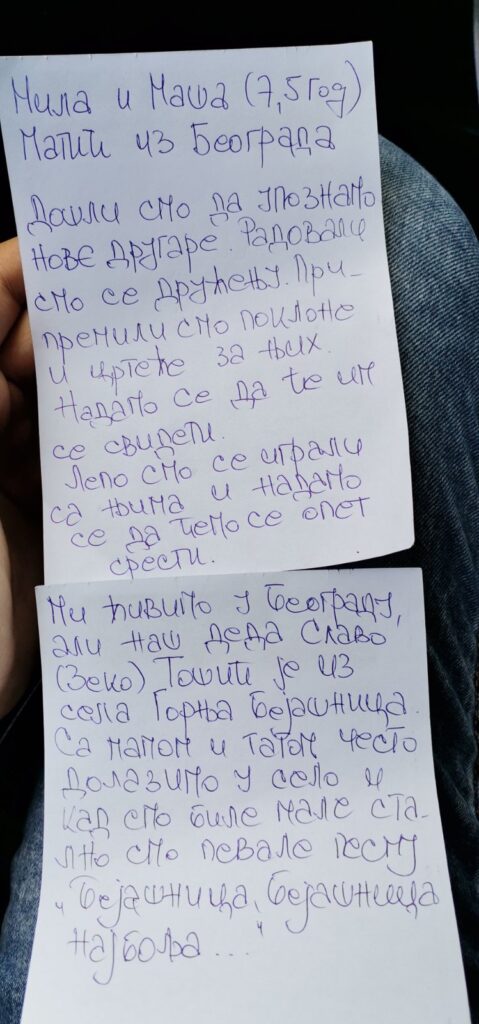 Мила и Маша (7,5 год)
Матић из Београда
Дошли смо да упознамо
нове другаре. Радовали
смо се дружењу. При-
премили смо поклоне
и цртеже за њих.
Надамо се да ће им
се свидети.
Лепо смо се играли
са њима и надамо
се да ћемо се опет
срести.
Ми живимо у Београду,
али наш деда Славо
(Зеко) Тошић је из
села Горња Бејашница.
Са мамом и татом често
долазимо у село и
кад смо биле мале ста-
лно смо певале песму
„Бејашница, Бејашница
најбоља..."